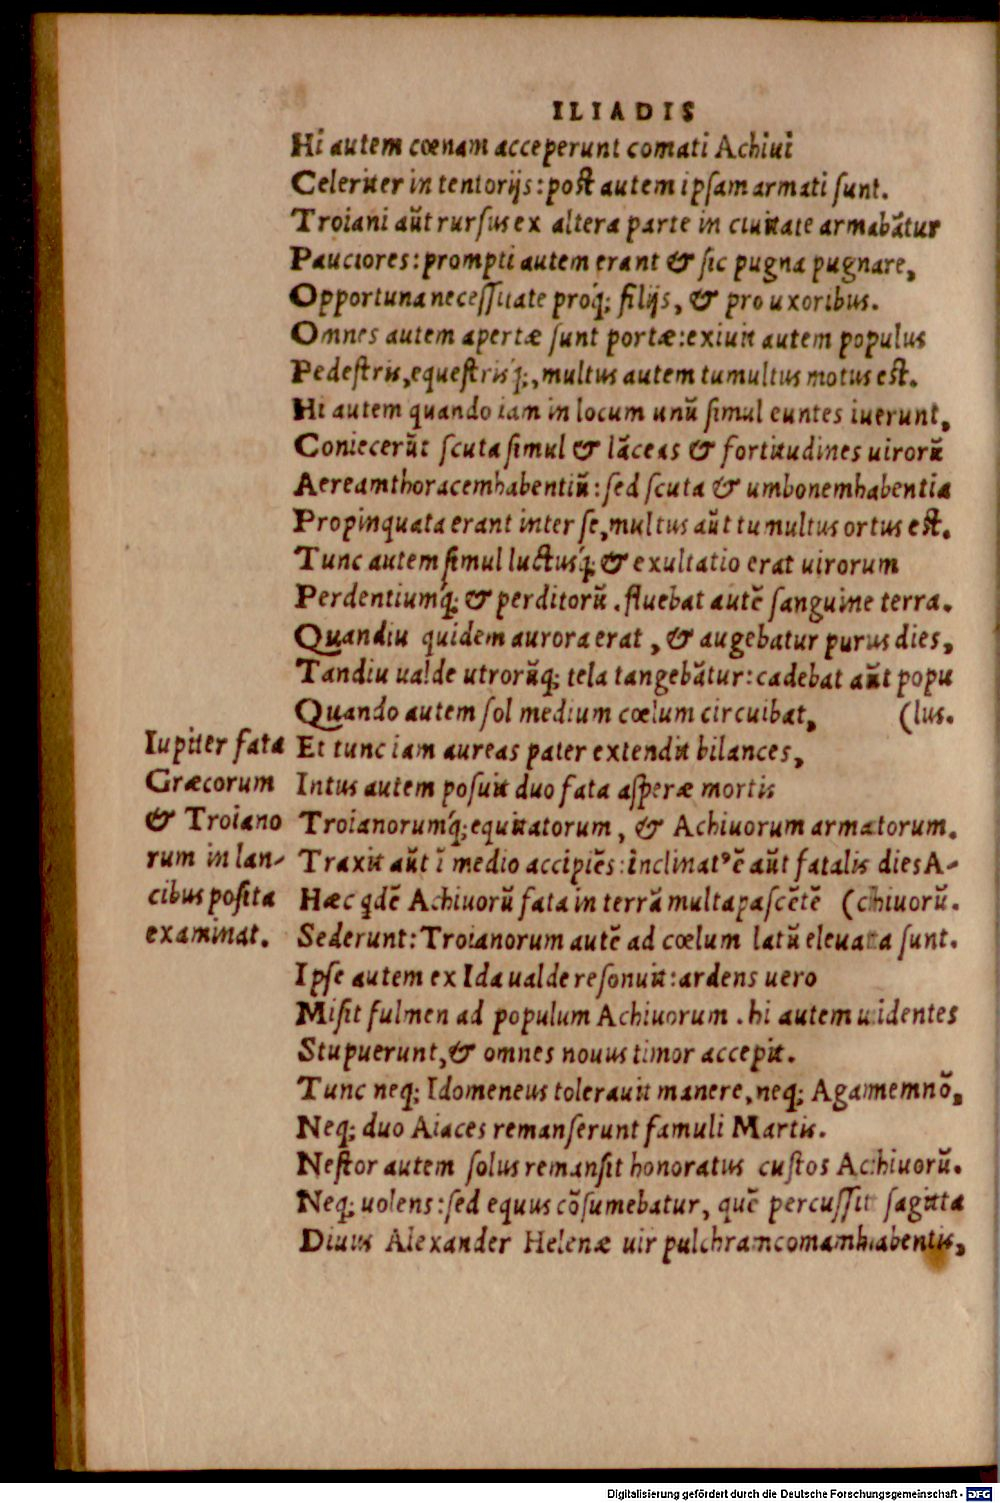 ILIADIS
Hi autem cœnam acceperunt comati Achiui
Celeriter in tentorijs: post autem ipsam armati sunt.
Troiani aũt rursus ex altera parte in ciuitate armabãtur
Pauciores: prompti autem erant & sic pugna pugnare,
Opportuna necessitate proq́; filijs, & pro uxoribus.
Omnes autem apertæ sunt portæ: exiuit autem populus
Pedestris, equestrisq́;, multus autem tumultus motus est.
Hi autem quando iam in locum unũ simul euntes iuerunt,
Coniecerũt scuta simul & lãceas & fortitudines uirorũ
Aereamthoracemhabentiũ: sed scuta & umbonemhabentia
Propinquata erant inter se, multus aũt tumultus ortus est.
Tunc autem simul luctusq́; & exultatio erat uirorum
Perdentiumq́; & perditorũ. fluebat autẽ sanguine terra.
Quandiu quidem aurora erat, & augebatur purus dies,
Tandiu ualde utrorũq; tela tangebãtur: cadebat aũt popu
Quando autem sol medium cœlum circuibat, (lus.
Iupiter fata
Græcorum
& Troiano
rum in lan-
cibus posita
examinat.
Et tunc iam aureas pater extendit bilances,
Intus autem posuit duo fata asperæ mortis
Troianorumq́; equitatorum, & Achiuorum armatorum.
Traxit aũt ĩ medio accipiẽs: inclinatꝰ ẽ aũt fatalis dies A-
Hæc qdẽ Achiuorũ fata in terrã multapascẽtẽ (chiuorũ.
Sederunt: Troianorum autẽ ad cœlum latũ eleuata sunt.
Ipse autem ex Ida ualde resonuit: ardens uero
Misit fulmen ad populum Achiuorum. hi autem uidentes
Stupuerunt, & omnes nouus timor accepit.
Tunc neq; Idomeneus tolerauit manere, neq; Agamemnõ,
Neq; duo Aiaces remanserunt famuli Martis.
Nestor autem solus remansit honoratus custos Achiuorũ.
Neq; uolens: sed equus cõsumebatur, quẽ percussit sagitta
Diuus Alexander Helenæ uir pulchramcomamhabentis,
Digitalisierung gefördert durch die Deutsche Forschungsgemeinschaft - DFG